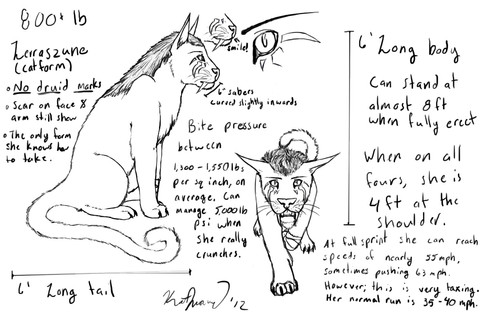 800+ lb
Zeiraszune
(catform)
• No druid marks
• Scar on face &
arm still show
• The only form
she knows how
to take.
smile!
6" sabers
curved slightly inwards
Bite pressure
between
1,300 - 1,550 lbs
per sq inch, on
average. Can
manage 5,000 lb
psi when
she really
crunches.
6' Long body
Can stand at
almost 8ft
when fully erect
When on all
fours, she is
4ft at the
shoulder.
At full sprint she can reach
speeds of nearly 55mph,
sometimes pushing 63 mph.
However, this is very taxing.
Her normal run is 35-40 mph.
6' Long tail
'12